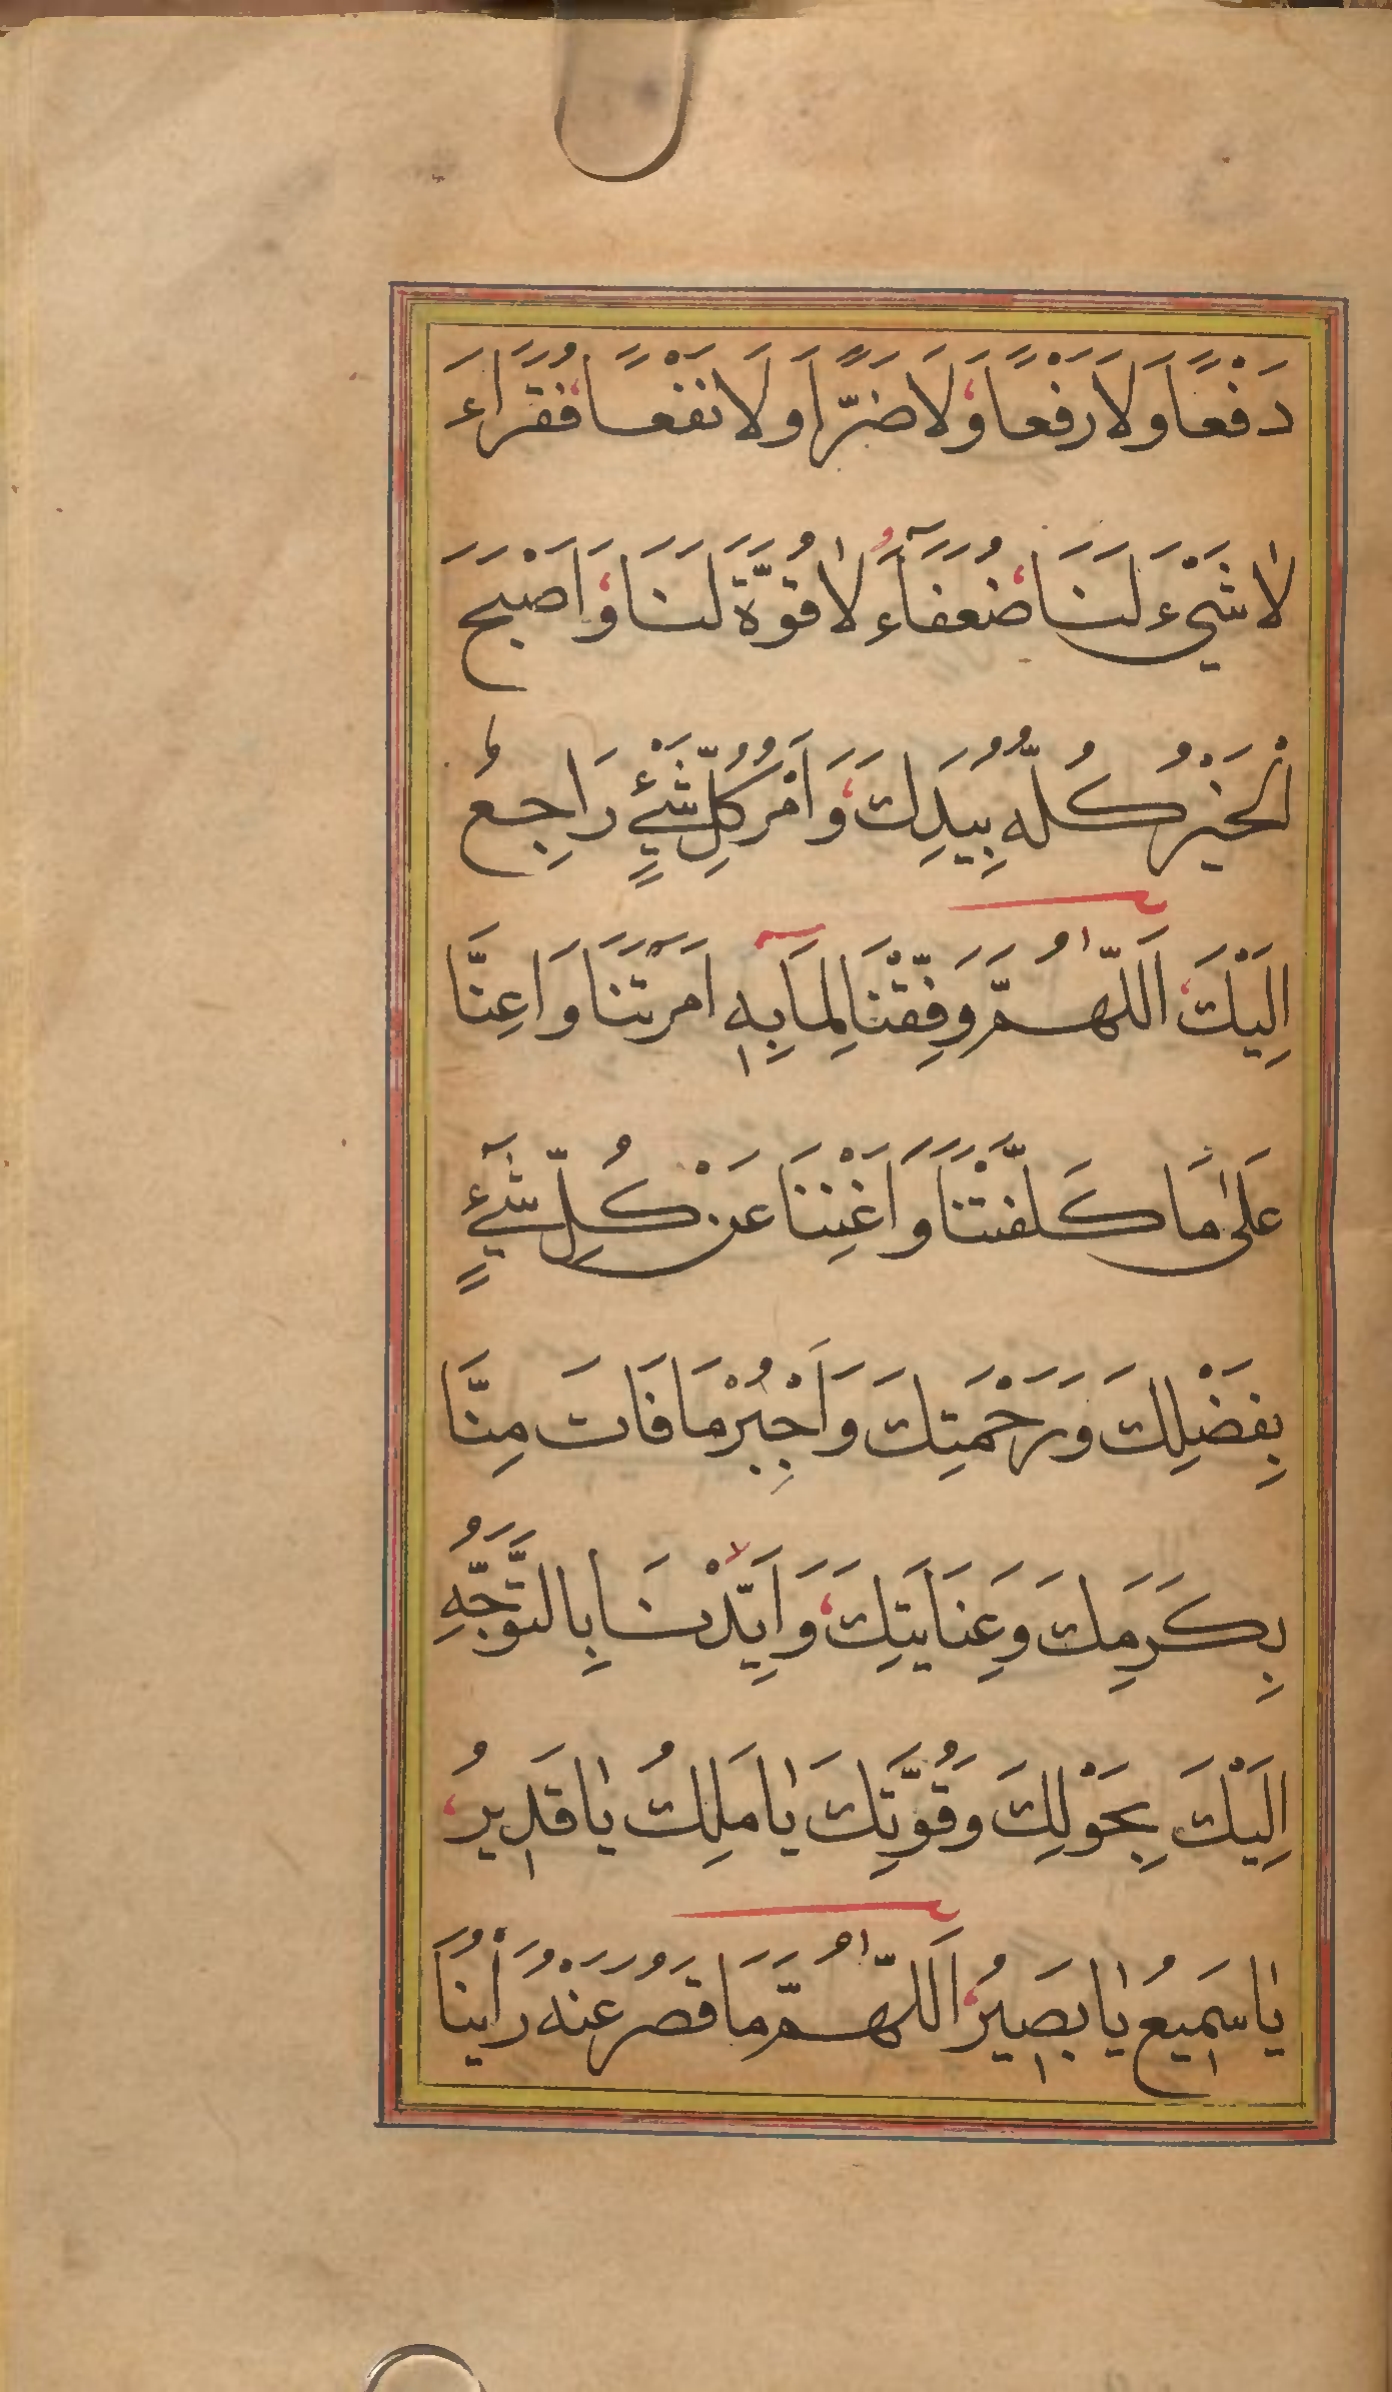 دَفْعًا وَلَا رَفْعًا وَلَا ضَرًّا وَلَا نَفْعًا فُقَرَاءَ
لَا شَيْءَ لَنَا ضُعَفَآءَ لَا قُوَّةَ لَنَا وَاَصْبَحَ
الْخَيْرُ كُلُّهُ بِيَدِكَ وَاَمْرُ كُلِّ شَيْءٍ رَاجِعٌ
اِلَيْكَ اَللّٰهُمَّ وَفِّقْنَا لِمَا بِهٖ اَمَرْتَنَا وَاَعِنَّا
عَلٰى مَا كَلَّفْتَنَا وَاَغْنِنَا عَنْ كُلِّ شَيْءٍ
بِفَضْلِكَ وَرَحْمَتِكَ وَاَجْبِرْ مَا فَاتَ مِنَّا
بِكَرَمِكَ وَعِنَايَتِكَ وَاَيِّدْنَا بِالتَّوَجُّهِ
اِلَيْكَ بِحَوْلِكَ وَقُوَّتِكَ يَا مَلِكُ يَا قَدِيرُ
يَا سَمِيعُ يَا بَصِيرُ اَللّٰهُمَّ مَا قَصُرَ عَنْهُ رَأْيُنَا